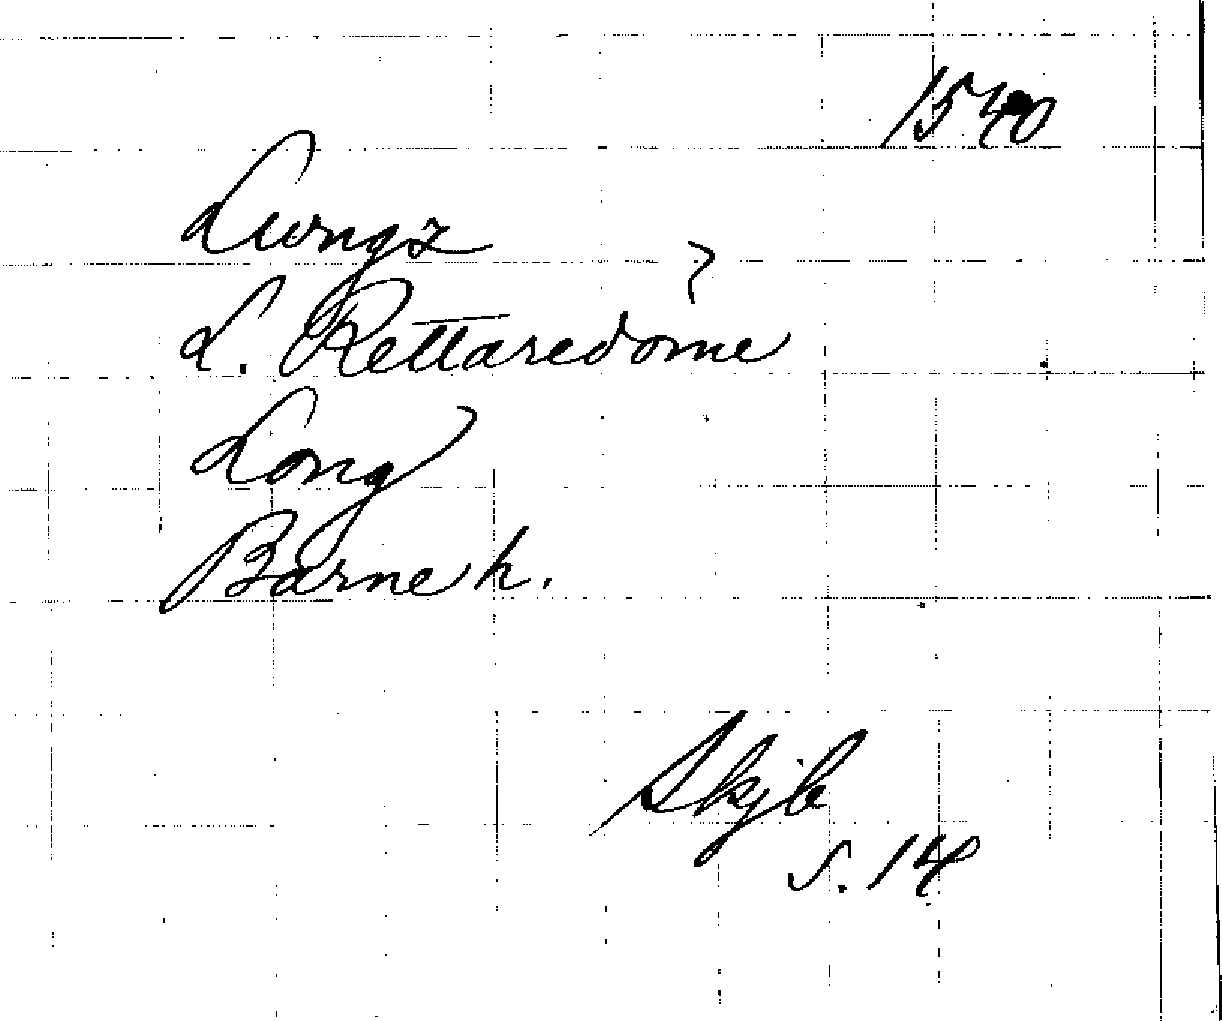 1540
Lungz
?
L. Rettaredome
Long
Barne h.
Skjb
S. 14